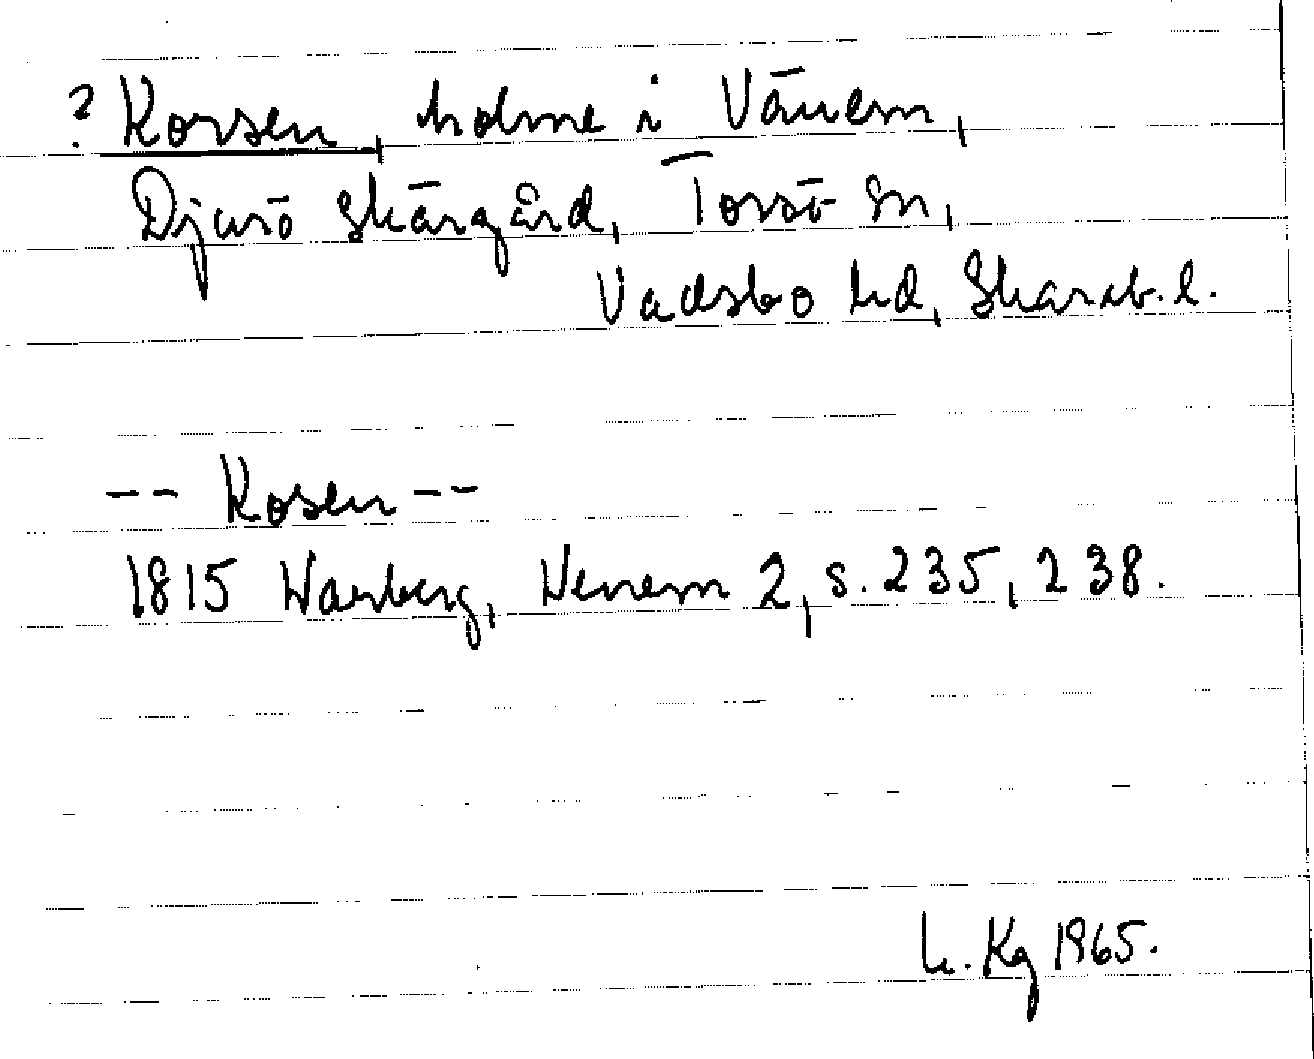 ? Korsen, holme i Vänern,
Djurö skärgård, Torsö sn,
Vadsbo hd, Skarab. l.
-- Kosen --
1815 Warberg, Wenern 2, s. 235, 238.
Kg 1965.